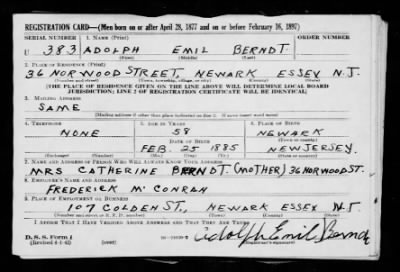 REGISTRATION CARD—(Men born on or after April 28, 1877 and on or before February 16, 1897)
SERIAL NUMBER 1. NAME (Print) ORDER NUMBER
U 383 ADOLPH EMIL BERNDT
(First) (Middle) (Last)
2. PLACE OF RESIDENCE (Print)
36 NORWOOD STREET, NEWARK ESSEX N.J.
(Number and street) (Town, township, village, or city) (County) (State)
[THE PLACE OF RESIDENCE GIVEN ON THE LINE ABOVE WILL DETERMINE LOCAL BOARD
JURISDICTION; LINE 2 OF REGISTRATION CERTIFICATE WILL BE IDENTICAL]
3. MAILING ADDRESS
SAME
[Mailing address if other than place indicated on line 2. If same insert word same]
4. TELEPHONE 5. AGE IN YEARS 6. PLACE OF BIRTH
NONE 58 NEWARK
DATE OF BIRTH (Town or county)
FEB. 25 1885 NEW JERSEY.
(Exchange) (Number) (Mo.) (Day) (Yr.) (State or country)
7. NAME AND ADDRESS OF PERSON WHO WILL ALWAYS KNOW YOUR ADDRESS
MRS CATHERINE BERNDT. (MOTHER) 36 NORWOOD ST.
8. EMPLOYER'S NAME AND ADDRESS
FREDERICK Mc CONRAH
9. PLACE OF EMPLOYMENT OR BUSINESS
107 COLDEN ST., NEWARK ESSEX N.J.
(Number and street or R. F. D. number) (Town) (County) (State)
I AFFIRM THAT I HAVE VERIFIED ABOVE ANSWERS AND THAT THEY ARE TRUE.
D. S. S. Form 1
(Revised 4-1-42) (over) Adolph Emil Berndt